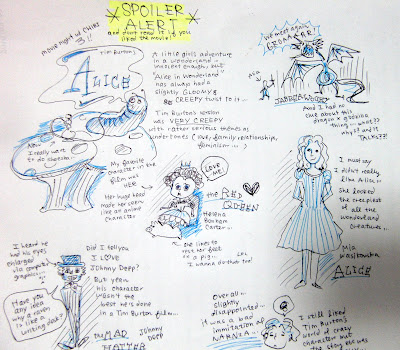 *SPOILER ALERT*
and don't read it if you
liked the movie!
movie night w/
3!!
TIM BURTON'S
ALICE
A little girls adventure
in a wonderland...
innocent enough, but
'Alice in Wonderland'
has always had a
slightly GLOOMY &
CREEPY twist to it...
Tim Burton's version
was VERY CREEPY
with rather serious themes as
undertones (war, family relationships,
feminism...)
We meet again,
aka
a
JABBERWOCKY
And I had no
clue about this
dragon-looking
thing - what??
why?? and it
TALKS??!
Now
I really want
to do shoesha..
My favorite
character in the
film was
HER
Her huge head
made her seem
like an anime
character
LOVE
ME
the RED
QUEEN
Helena
Bonham
Carter...
she likes to
rest her feet
on a pig...
I wanna do that too!
I must say
I didn't really
like Alice...
She looked
the creepiest
of all the
wonderland
creatures...
Mia
Wasikowska
ALICE
I heard he
had his eyes
enlarged
via computer
graphics...
Have you
any idea
why a raven
is like a
writing desk?
Did I tell you
I LOVE
JOHNNY Depp?
But yeah...
his character
wasn't the
best he's done
in a Tim Burton film...
the MAD
HATTER
Johnny
Depp
Overall...
slightly
disappointed...
It was a bad
immitation of
NARNIA...
I still liked
Tim Burton's
world of crazy
characters but
story was